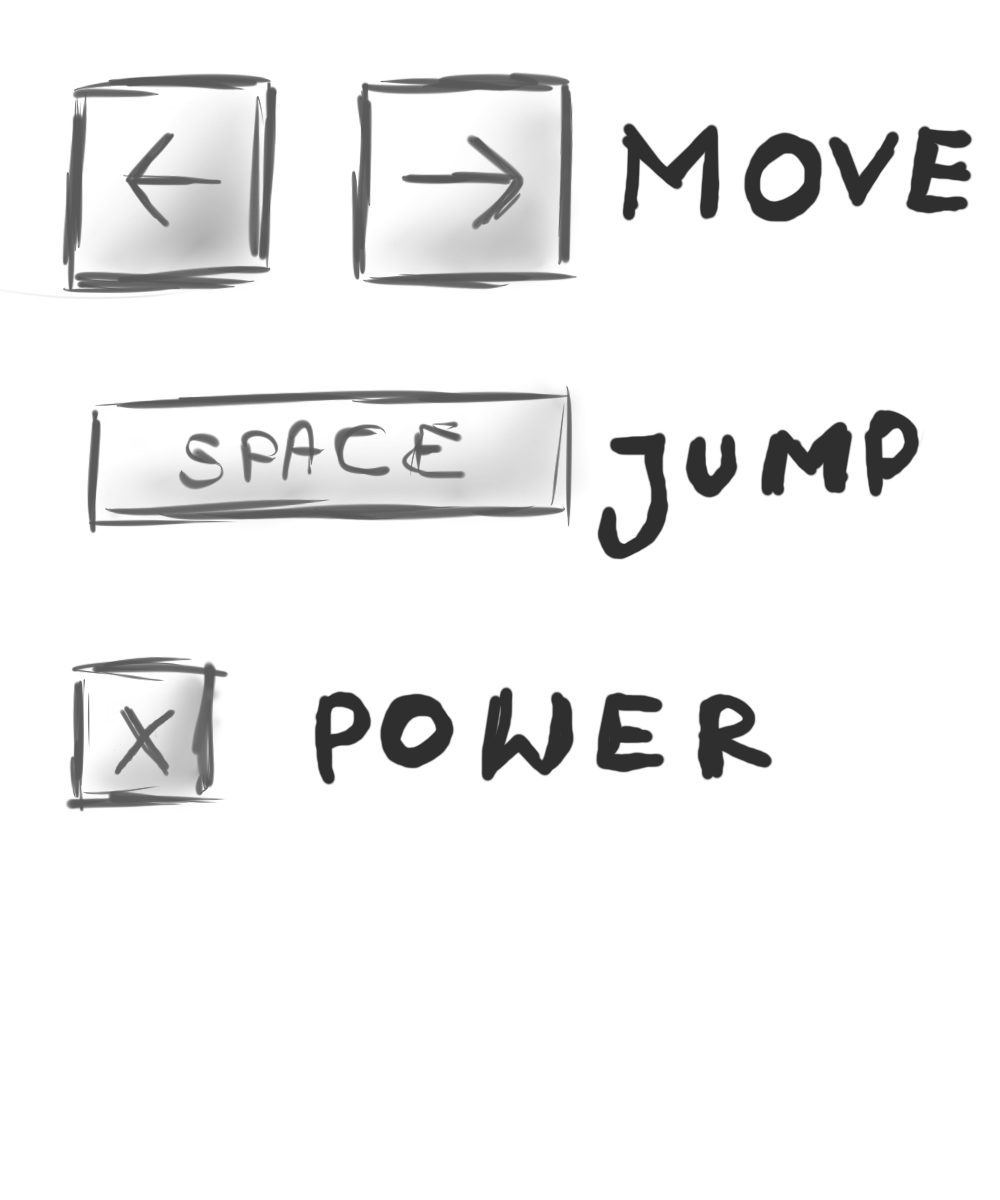 ← → MOVE
SPACE JUMP
X POWER